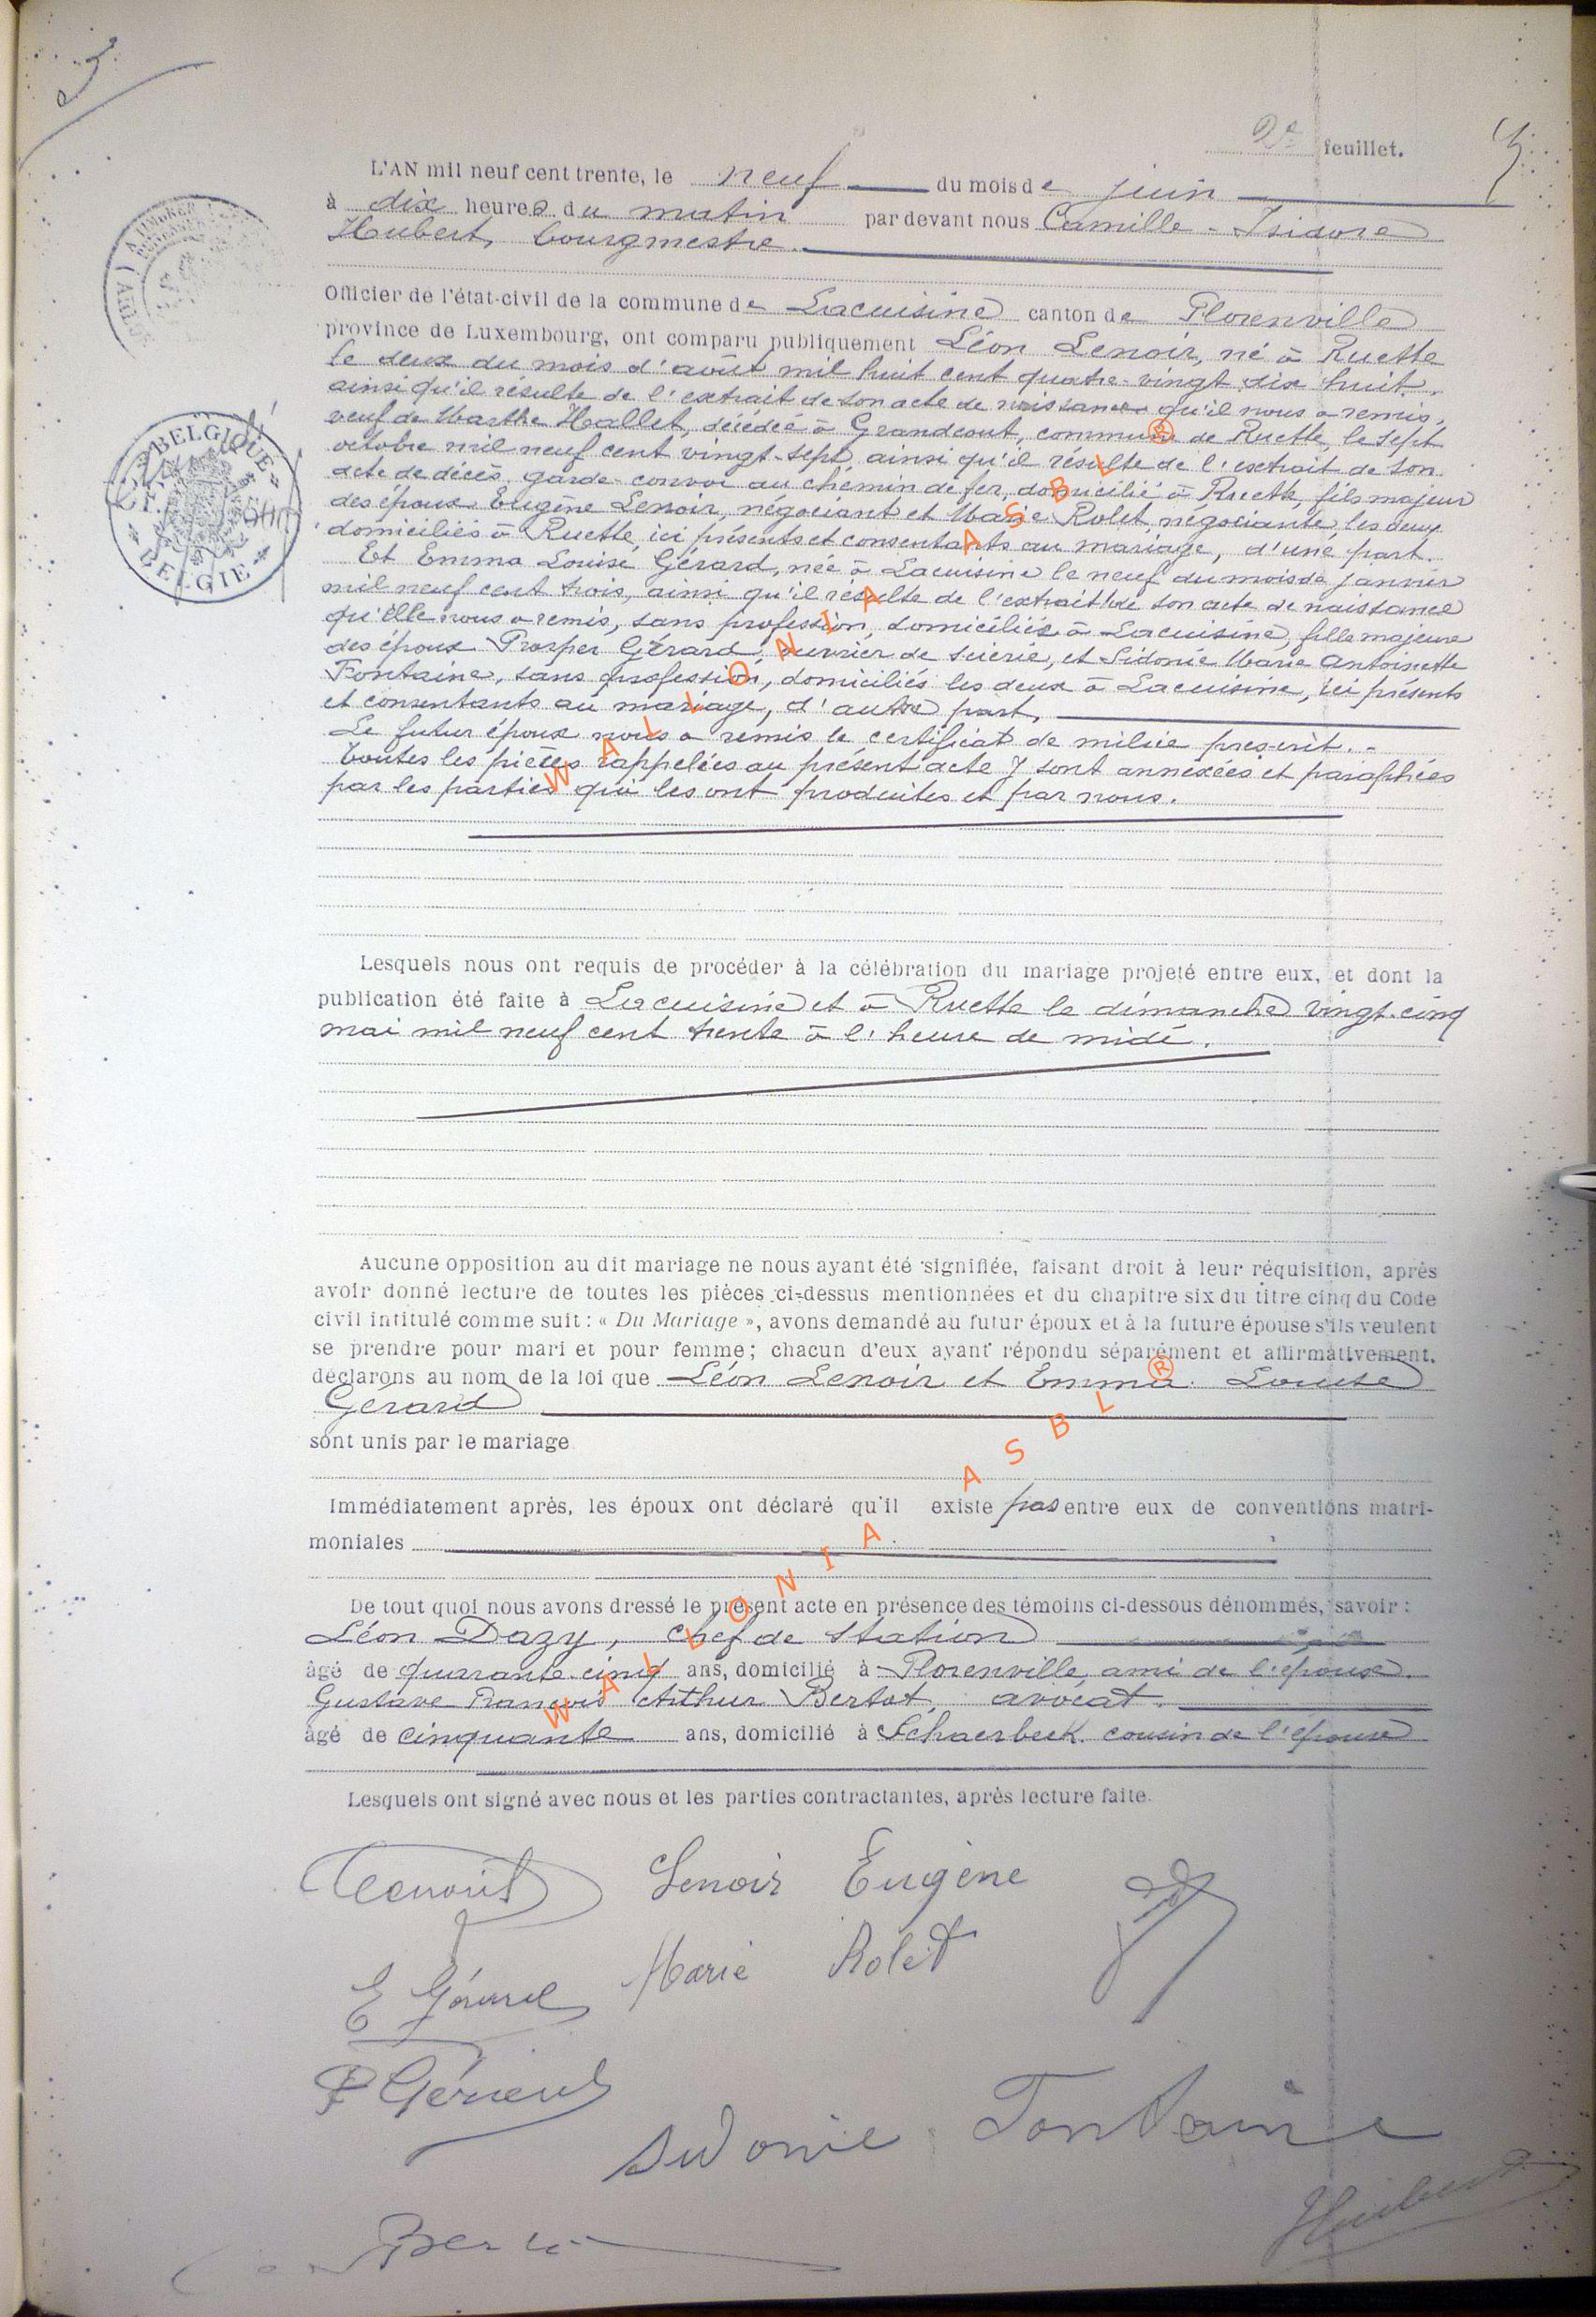 3
2e feuillet.
3
L'AN mil neuf cent trente, le neuf du mois de juin
à dix heures du matin par devant nous Camille - Isidore
Hubert, bourgmestre.
Officier de l'état-civil de la commune de Lacuisine canton de Florenville
province de Luxembourg, ont comparu publiquement Léon Lenoir, né à Ruette
le deux du mois d'août mil huit cent quatre-vingt dix huit,
ainsi qu'il résulte de l'extrait de son acte de naissance qu'il nous a remis,
veuf de Marthe Hallet, décédée à Grandcourt, commune de Ruette, le sept
octobre mil neuf cent vingt-sept ainsi qu'il résulte de l'extrait de son
acte de décès, garde-convoi au chemin de fer, domicilié à Ruette, fils majeur
des époux Eugène Lenoir, négociant et Marie Rolet, négociante, les deux
domiciliés à Ruette, ici présents et consentants au mariage, d'une part.
Et Emma Louise Gérard, née à Lacuisine le neuf du mois de janvier
mil neuf cent trois, ainsi qu'il résulte de l'extrait de son acte de naissance
qu'elle nous a remis, sans profession, domiciliée à Lacuisine, fille majeure
des époux Prosper Gérard, ouvrier de scierie, et Sidonie Marie Antoinette
Fontaine, sans profession, domiciliés les deux à Lacuisine, ici présents
et consentants au mariage, d'autre part,
Le futur époux nous a remis le certificat de milice prescrit. -
Toutes les pièces rappelées au présent acte y sont annexées et paraphées
par les parties qui les ont produites et par nous.
BELGIQUE
BELGIE
Lesquels nous ont requis de procéder à la célébration du mariage projeté entre eux, et dont la
publication été faite à Lacuisine et à Ruette le dimanche vingt-cinq
mai mil neuf cent trente à l'heure de midi.
Aucune opposition au dit mariage ne nous ayant été signifiée, faisant droit à leur réquisition, après
avoir donné lecture de toutes les pièces ci-dessus mentionnées et du chapitre six du titre cinq du Code
civil intitulé comme suit : « Du Mariage », avons demandé au futur époux et à la future épouse s'ils veulent
se prendre pour mari et pour femme ; chacun d'eux ayant répondu séparément et affirmativement,
déclarons au nom de la loi que Léon Lenoir et Emma Louise
Gérard
sont unis par le mariage
Immédiatement après, les époux ont déclaré qu'il existe pas entre eux de conventions matri-
moniales
De tout quoi nous avons dressé le présent acte en présence des témoins ci-dessous dénommés, savoir :
Léon Dazy, chef de station
âgé de quarante-cinq ans, domicilié à Florenville, ami de l'époux.
Gustave François Arthur Bertot, avocat.
âgé de cinquante ans, domicilié à Schaerbeek, cousin de l'épouse
Lesquels ont signé avec nous et les parties contractantes, après lecture faite.
Lenoir Lenoir Eugène
E Gérard Marie Rolet
P Gérard
Sidonie Fontaine
Hubert
WALLONIA ASBL ®
WALLONIA ASBL ®